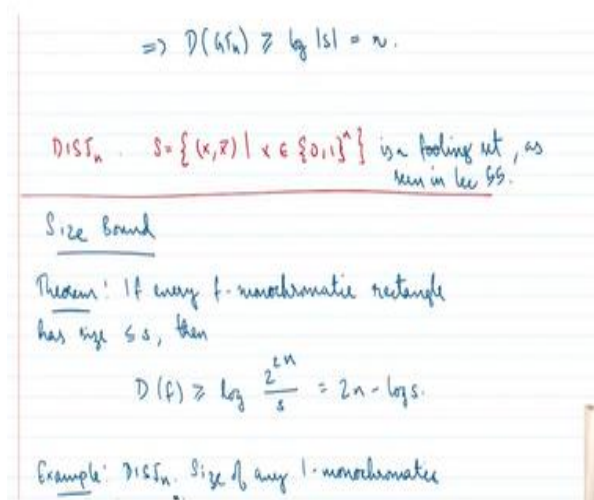 => D(GTn) ≥ log |S| = n.
DISJn. S = { (x, x̄) | x ∈ {0,1}^n } is a fooling set, as
seen in lec 55.
Size Bound
Theorem: If every f-monochromatic rectangle
has size ≤ s, then
D(f) ≥ log 2^{2n}/s = 2n - log s.
Example: DISJn. Size of any 1-monochromatic